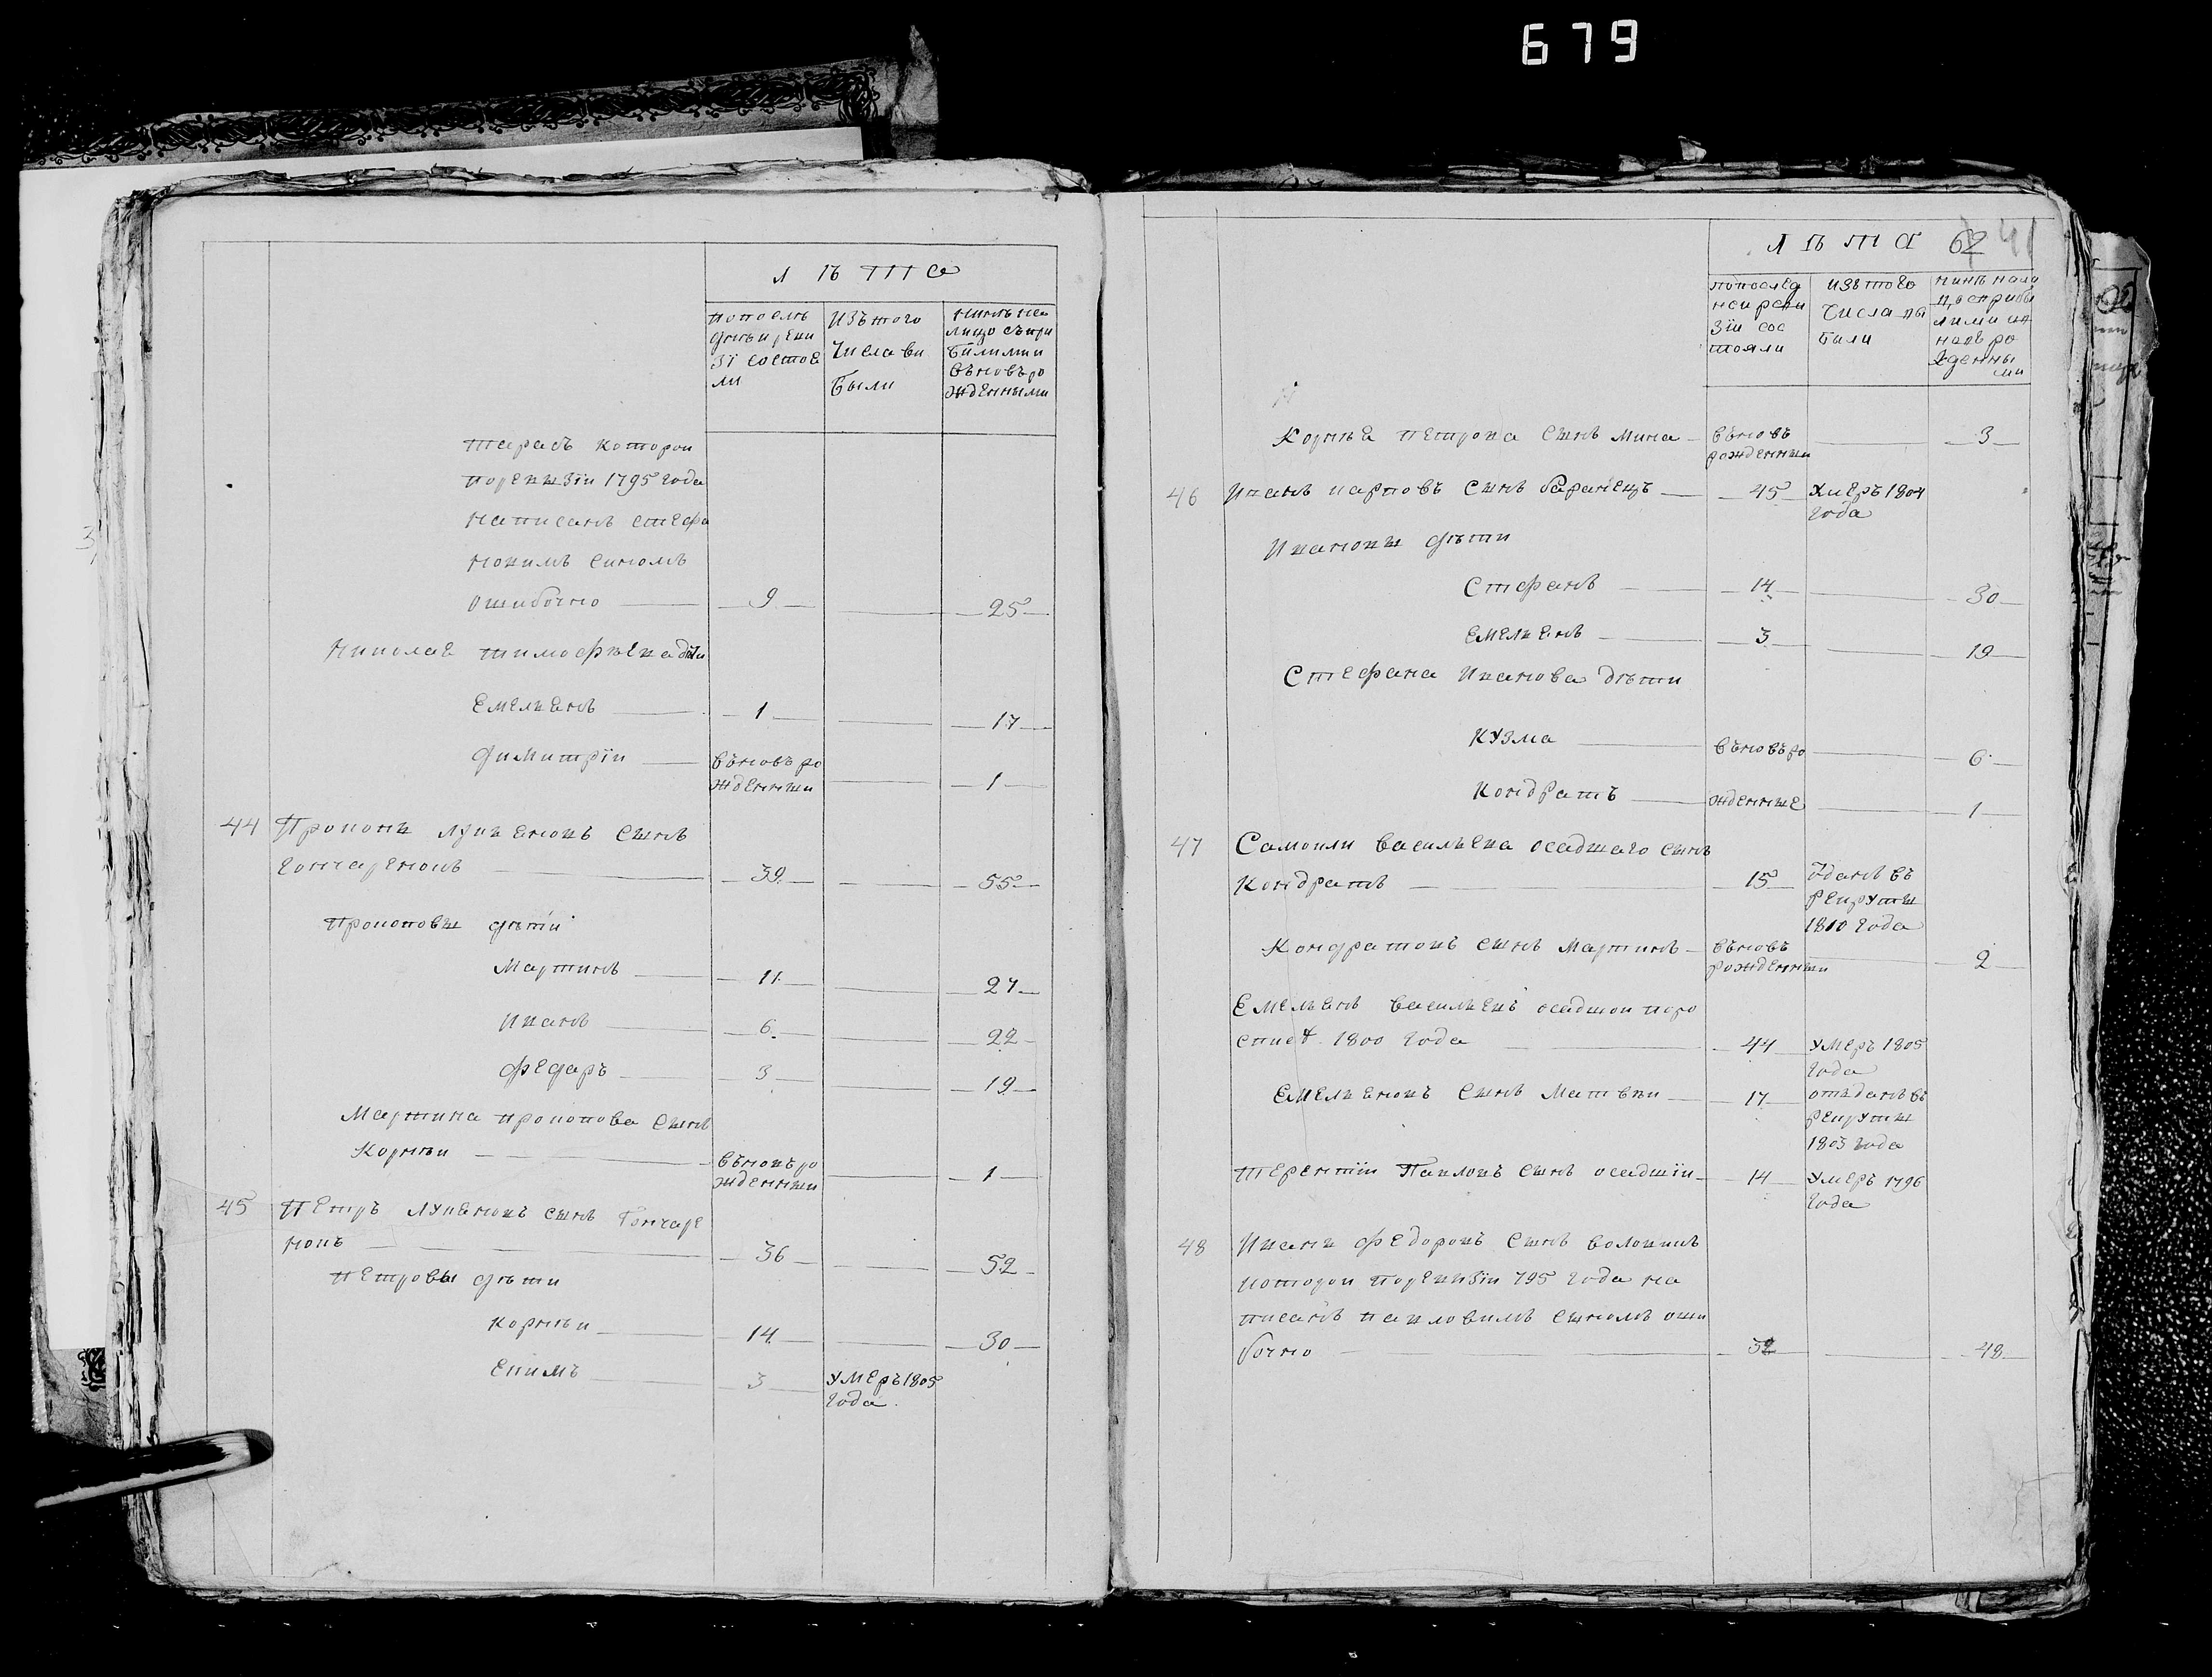 679
Лѣта
попослѣ
днѣи реви
зіи состоя
ли
Изъ того
числа вы
были
нынѣ на
лицо съпри
былими и
вѣновь ро
жденными
тарасъ которои
поревизіи 1795 года
написанъ стефа
новимъ синомъ
ошибочно 9 25
Николая тимофѣева дѣти
Емельянъ 1 17
димитріи вѣновь ро
жденныи 1
44 Прокопъ лукьяновъ сынъ
гончаренокъ 39 55
Прокоповы дѣти
Мартинъ 11 27
Иванъ 6 22
Федаръ 3 19
Мартина прокопова сынъ
Корнѣи вѣновь ро
жденныи 1
45 Петръ лукяновъ сынъ Гончаре
нокъ 36 52
Петровы дѣти
Корнѣи 14 30
Екимъ 3 умеръ 1805
года
Лѣта 62 41
попослед
неи реви
зіи сос
тояли
изъ того
числа вы
били
нинѣ нали
цо
рожденны
ми
Корнѣя петрова сынъ мина вѣновь 3
рожденныи
46 Иванъ карповъ сынъ баранецъ 45 умеръ 1804
года
Ивановы дѣти
Стефанъ 14 30
Емельянъ 3 19
Стефана Иванова дѣти
Кузма вѣновь ро 6
Кондратъ жденные 1
47 Самоили васильева осадшаго сынъ
Кондратъ 15 зданъ въ
рекруты
1810 года
Кондратовъ сынъ мартинъ вѣновь
рожденныи 2
Емельянъ васильевъ осадшои поро
1800 года 44 умеръ 1805
года
Емельяновъ сынъ матвѣи 17 отъданъ въ
рекруты
1803 года
терентіи Павловъ сынъ осадшіи 14 умеръ 1796
года
48 Иванъ федоровъ сынъ волокинъ
которои поревизіи 795 года на
писанъ павловимъ сыномъ оши
бочно 32 48